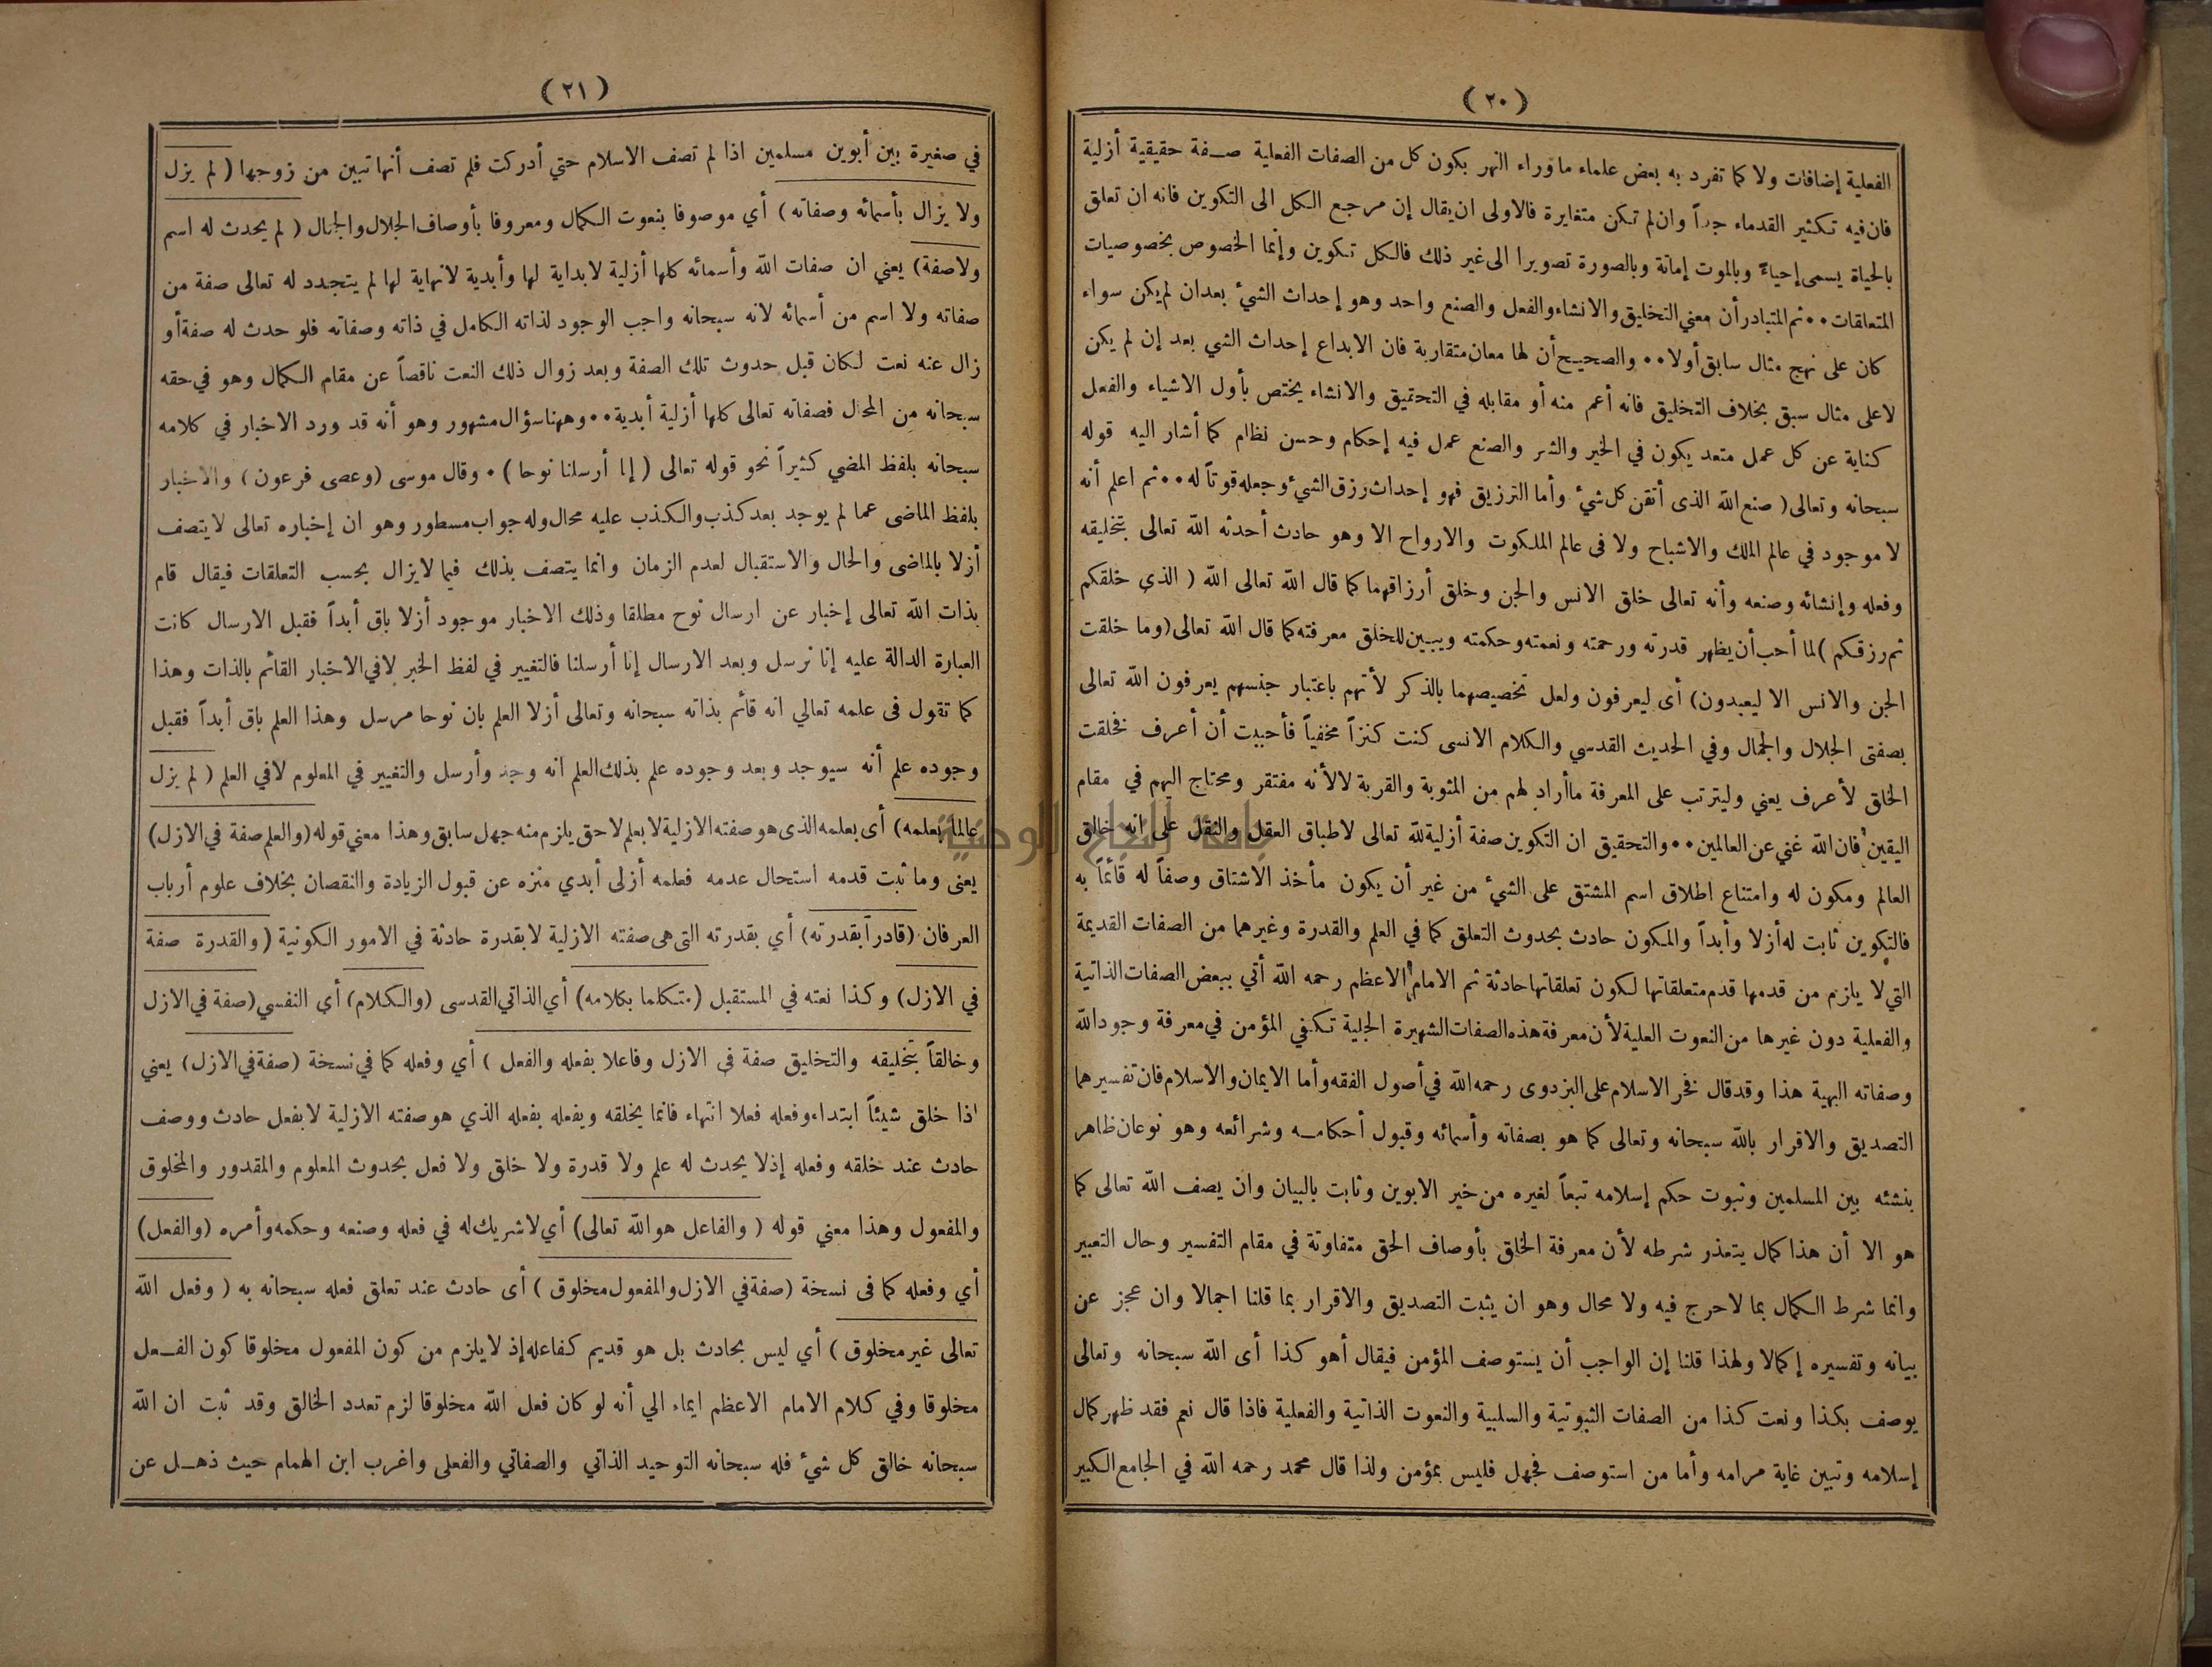 (٢٠)
الفعلية إضافات ولا كما تفرد به بعض علماء ماوراء النهر بكون كل من الصفات الفعلية صفة حقيقية أزلية
فان فيه تكثير القدماء جداً وان لم تكن متغايرة فالاولى ان يقال إن مرجع الكل الى التكوين فانه ان تعلق
بالحياة يسمى إحياءً وبالموت إماتة وبالصورة تصويرا الى غير ذلك فالكل تكوين وإنما الخصوص بخصوصيات
المتعلقات ٠٠ ثم المتبادر أن معني التخليق والانشاء والفعل والصنع واحد وهو إحداث الشيء بعد ان لم يكن سواء
كان على نهج مثال سابق أولا ٠٠ والصحيح أن لها معان متقاربة فان الابداع إحداث الشي بعد إن لم يكن
لاعلى مثال سبق بخلاف التخليق فانه أعم منه أو مقابله في التحقيق والانشاء يختص بأول الاشياء والفعل
كناية عن كل عمل متعد يكون في الخير والشر والصنع عمل فيه إحكام وحسن نظام كما أشار اليه قوله
سبحانه وتعالى ( صنع الله الذى أتقن كل شيء وأما الترزيق فهو إحداث رزق الشيء وجعله قوتاً له ٠٠ ثم اعلم أنه
لا موجود في عالم الملك والاشباح ولا فى عالم الملكوت والارواح الا وهو حادث أحدثه الله تعالى بتخليقه
وفعله وإنشائه وصنعه وأنه تعالى خلق الانس والجن وخلق أرزاقهما كما قال الله تعالى الله ( الذي خلقكم
ثم رزقكم ) لما أحب أن يظهر قدرته ورحمته ونعمته وحكمته ويبين للخلق معرفته كما قال الله تعالى (وما خلقت
الجن والانس الا ليعبدون) أى ليعرفون ولعل تخصيصهما بالذكر لأنهم باعتبار جنسهم يعرفون الله تعالى
بصفتى الجلال والجمال وفي الحديث القدسي والكلام الانسى كنت كنزاً مخفياً فأحببت أن أعرف فخلقت
الخلق لأعرف يعني وليترتب على المعرفة ماأراد لهم من المثوبة والقربة لا لأنه مفتقر ومحتاج اليهم في مقام
اليقين فان الله غني عن العالمين ٠٠ والتحقيق ان التكوين صفة أزلية لله تعالى لاطباق العقل والنقل على انه خالق
العالم ومكون له وامتناع اطلاق اسم المشتق على الشيء من غير أن يكون مأخذ الاشتاق وصفاً له قائماً به
فالتكوين ثابت له أزلا وأبداً والمكون حادث بحدوث التعلق كما في العلم والقدرة وغيرهما من الصفات القديمة
التي لا يلزم من قدمها قدم متعلقاتها لكون تعلقاتها حادثة ثم الامام الاعظم رحمه الله أتي ببعض الصفات الذاتية
والفعلية دون غيرها من النعوت العلية لأن معرفة هذه الصفات الشهيرة الجلية تكفي المؤمن في معرفة وجود الله
وصفاته البهية هذا وقد قال فخر الاسلام على البزدوى رحمه الله في أصول الفقه وأما الايمان والاسلام فان تفسيرهما
التصديق والاقرار بالله سبحانه وتعالى كما هو بصفاته وأسمائه وقبول أحكامه وشرائعه وهو نوعان ظاهر
بنشئه بين المسلمين وثبوت حكم إسلامه تبعاً لغيره من خير الابوين وثابت بالبيان وان يصف الله تعالى كما
هو الا أن هذا كمال يتعذر شرطه لأن معرفة الخلق بأوصاف الحق متفاوتة في مقام التفسير وحال التعبير
وانما شرط الكمال بما لاحرج فيه ولا محال وهو ان يثبت التصديق والاقرار بما قلنا اجمالا وان عجز عن
بيانه وتفسيره إكمالا ولهذا قلنا إن الواجب أن يستوصف المؤمن فيقال أهو كذا أى الله سبحانه وتعالى
يوصف بكذا ونعت كذا من الصفات الثبوتية والسلبية والنعوت الذاتية والفعلية فاذا قال نعم فقد ظهر كمال
إسلامه وتبين غاية مرامه وأما من استوصف فجهل فليس بمؤمن ولذا قال محمد رحمه الله في الجامع الكبير
(٢١)
في صغيرة بين أبوين مسلمين اذا لم تصف الاسلام حتي أدركت فلم تصف أنها تبين من زوجها ( لم يزل
ولا يزال بأسمائه وصفاته ) أي موصوفا بنعوت الكمال ومعروفا بأوصاف الجلال والجمال ( لم يحدث له اسم
ولاصفة) يعني ان صفات الله وأسمائه كلها أزلية لابداية لها وأبدية لانهاية لها لم يتجدد له تعالى صفة من
صفاته ولا اسم من أسمائه لانه سبحانه واجب الوجود لذاته الكامل في ذاته وصفاته فلو حدث له صفة أو
زال عنه نعت لكان قبل حدوث تلك الصفة وبعد زوال ذلك النعت ناقصاً عن مقام الكمال وهو في حقه
سبحانه من المحال فصفاته تعالى كلها أزلية أبدية ٠٠ وههنا سؤال مشهور وهو أنه قد ورد الاخبار في كلامه
سبحانه بلفظ المضي كثيراً نحو قوله تعالى ( إنا أرسلنا نوحا ) ٠ وقال موسى (وعصى فرعون ) والاخبار
بلفظ الماضى عما لم يوجد بعد كذب والكذب عليه محال وله جواب مسطور وهو ان إخباره تعالى لا يتصف
أزلا بالماضى والحال والاستقبال لعدم الزمان وانما يتصف بذلك فيما لايزال بحسب التعلقات فيقال قام
بذات الله تعالى إخبار عن ارسال نوح مطلقا وذلك الاخبار موجود أزلا باق أبداً فقبل الارسال كانت
العبارة الدالة عليه إنا نرسل وبعد الارسال إنا أرسلنا فالتغيير في لفظ الخبر لافي الاخبار القائم بالذات وهذا
كما تقول فى علمه تعالي انه قائم بذاته سبحانه وتعالى أزلا العلم بان نوحا مرسل وهذا العلم باق أبداً فقبل
وجوده علم أنه سيوجد وبعد وجوده علم بذلك العلم انه وجد وأرسل والتغيير في المعلوم لافي العلم ( لم يزل
عالما بعلمه) أى بعلمه الذى هو صفته الازلية لا بعلم لاحق يلزم منه جهل سابق وهذا معني قوله (والعلم صفة في الازل)
يعنى وما ثبت قدمه استحال عدمه فعلمه أزلى أبدي منزه عن قبول الزيادة والنقصان بخلاف علوم أرباب
العرفان (قادرا بقدرته) أي بقدرته التى هى صفته الازلية لابقدرة حادثة في الامور الكونية (والقدرة صفة
في الازل) وكذا نعته في المستقبل (متكلما بكلامه) أي الذاتي القدسى (والكلام) أي النفسي (صفة في الازل
وخالقاً بتخليقه والتخليق صفة فى الازل وفاعلا بفعله والفعل ) أي وفعله كما في نسخة (صفة في الازل) يعني
اذا خلق شيئاً ابتداء وفعله فعلا انتهاء فانما يخلقه ويفعله بفعله الذي هو صفته الازلية لابفعل حادث ووصف
حادث عند خلقه وفعله إذلا يحدث له علم ولا قدرة ولا خلق ولا فعل بحدوث المعلوم والمقدور والمخلوق
والمفعول وهذا معني قوله ( والفاعل هو الله تعالى) أي لاشريك له في فعله وصنعه وحكمه وأمره (والفعل)
أي وفعله كما فى نسخة (صفة في الازل والمفعول مخلوق ) أى حادث عند تعلق فعله سبحانه به ( وفعل الله
تعالى غير مخلوق ) أي ليس بحادث بل هو قديم كفاعله إذ لايلزم من كون المفعول مخلوقا كون الفعل
مخلوقا وفي كلام الامام الاعظم ايماء الي أنه لو كان فعل الله مخلوقا لزم تعدد الخالق وقد ثبت ان الله
سبحانه خالق كل شيء فله سبحانه التوحيد الذاتي والصفاتي والفعلى واغرب ابن الهمام حيث ذهل عن
جامعة النجاح الوطنية